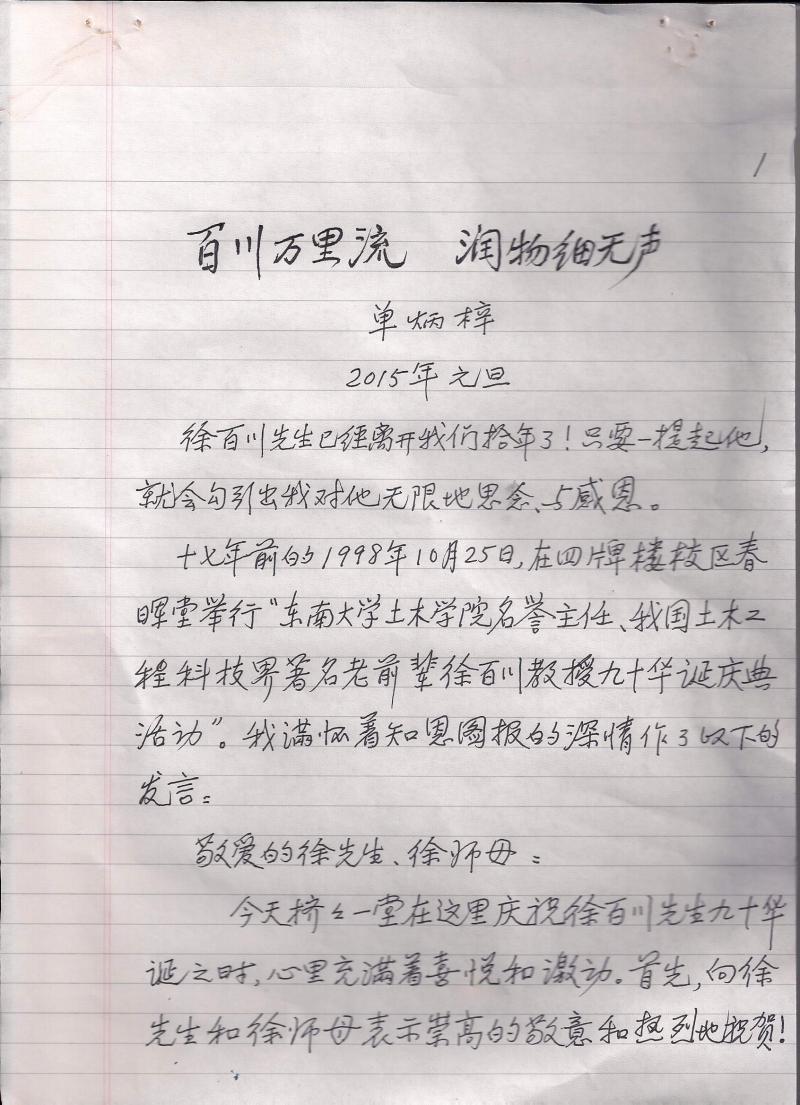 1
百川万里流 润物细无声
单炳梓
2015年元旦
徐百川先生已经离开我们拾年了！只要一提起他，
就会勾引出我对他无限地思念、与感恩。
十七年前的1998年10月25日，在四牌楼校区春
晖堂举行“东南大学土木学院名誉主任、我国土木工
程科技界著名老前辈徐百川教授九十华诞庆典
活动”。我满怀着知恩图报的深情作了以下的
发言：
敬爱的徐先生、徐师母：
今天挤々一堂在这里庆祝徐百川先生九十华
诞之时，心里充满着喜悦和激动。首先，向徐
先生和徐师母表示崇高的敬意和热烈地祝贺！